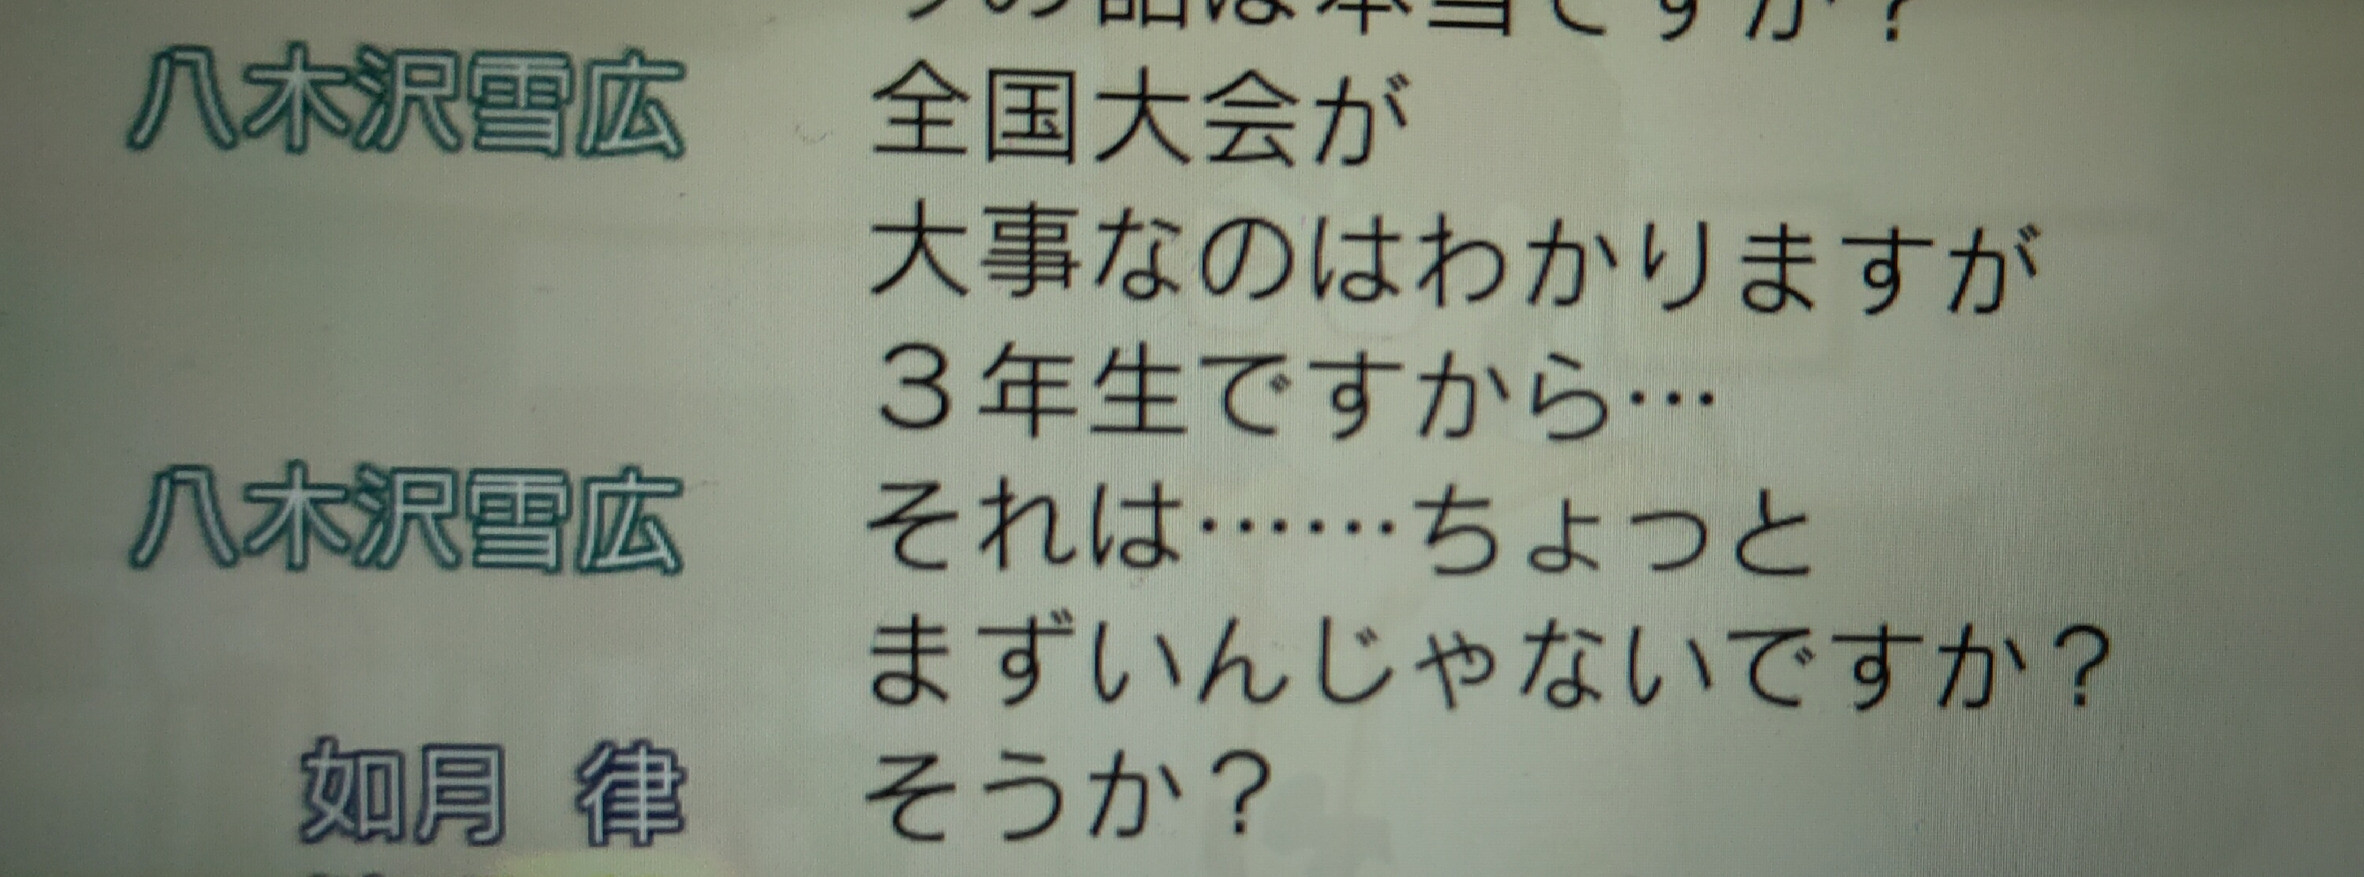 の話は本当ですか?
八木沢雪広 全国大会が
大事なのはわかりますが
3年生ですから…
八木沢雪広 それは……ちょっと
まずいんじゃないですか?
如月 律 そうか?